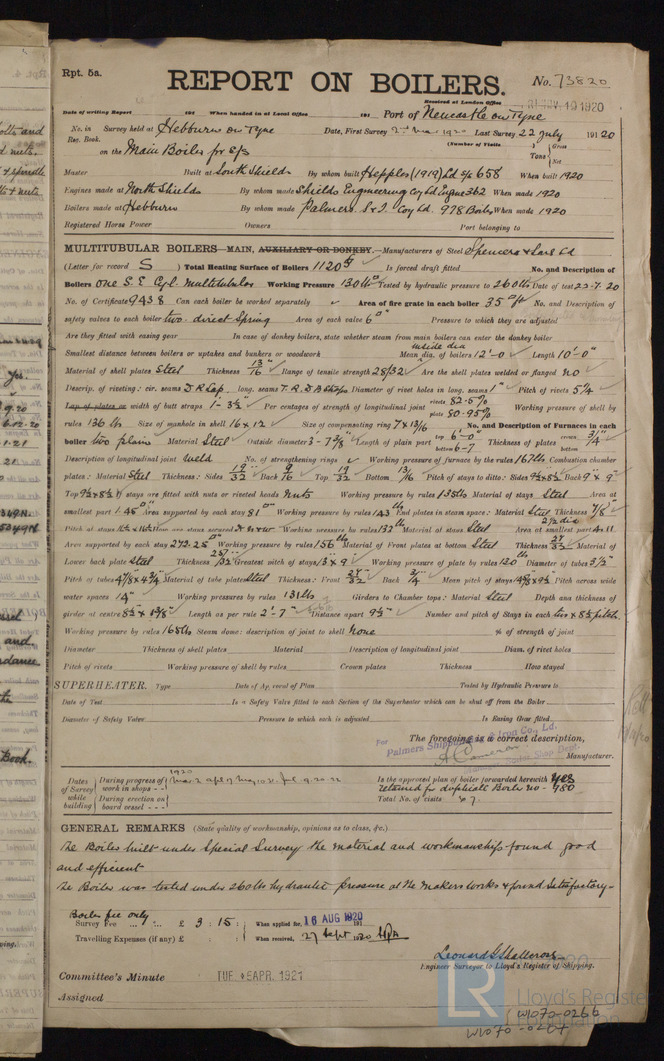 Rpt. 5a.
REPORT ON BOILERS.
No. 73820
Received at London Office
NOV. 1920
Date of writing Report 191 When handed in at Local Office 191 Port of Newcastle on Tyne
No. in Survey held at Hebburn on Tyne Date, First Survey 2nd Mar 1920 Last Survey 22 July 1920
Reg. Book.
(Number of Visits )
on the Main Boiler for
Tons { Gross Net
Master Built at South Shields By whom built Hepples (1919) Ld 658 When built 1920
Engines made at North Shields By whom made Shields Engineering Coy Ld Engine 362 When made 1920
Boilers made at Hebburn By whom made Palmers S. & I. Coy Ld. 978 Boiler When made 1920
Registered Horse Power Owners Port belonging to
MULTITUBULAR BOILERS — MAIN, AUXILIARY OR DONKEY. — Manufacturers of Steel Spencers & Sons Ld
(Letter for record S ) Total Heating Surface of Boilers 1120 Is forced draft fitted No. and Description of
Boilers one S E Cyl. Multitubular Working Pressure 130 lbs Tested by hydraulic pressure to 260 lbs Date of test 22-7-20
No. of Certificate 9438 Can each boiler be worked separately Area of fire grate in each boiler 35 No. and Description of
safety valves to each boiler two direct Spring Area of each valve 6 Pressure to which they are adjusted
Are they fitted with easing gear In case of donkey boilers, state whether steam from main boilers can enter the donkey boiler
Smallest distance between boilers or uptakes and bunkers or woodwork inside dia Mean dia. of boilers 12'-0 Length 10'-0"
Material of shell plates Steel Thickness 13/16" Range of tensile strength 28/32 Are the shell plates welded or flanged no
Descrip. of riveting: cir. seams D R Lap long. seams T. R. D B Straps Diameter of rivet holes in long. seams 1" Pitch of rivets 5 1/4
Lap of plates or width of butt straps 1'-3 1/2" Per centages of strength of longitudinal joint rivets 82.5% plate 80.95% Working pressure of shell by
rules 136 lbs Size of manhole in shell 16 x 12 Size of compensating ring 7 x 13/16 No. and Description of Furnaces in each
boiler two plain Material Steel Outside diameter 3-7 Length of plain part top 6'-0" bottom 6-7 Thickness of plates crown bottom 3/4
Description of longitudinal joint weld No. of strengthening rings Working pressure of furnace by the rules 167 lbs Combustion chamber
plates: Material Steel Thickness: Sides 19/32 Back 9/16 Top 19/32 Bottom 13/16 Pitch of stays to ditto: Sides Back 9" x 9"
Top If stays are fitted with nuts or riveted heads Nuts Working pressure by rules 135 lbs Material of stays Steel Area at
smallest part 1.45 Area supported by each stay 81 Working pressure by rules 143 lbs End plates in steam space: Material Steel Thickness 7/8"
Pitch of stays How are stays secured Working pressure by rules 132 lbs Material of stays Steel Area at smallest part
Area supported by each stay 272.25 Working pressure by rules 156 lbs Material of Front plates at bottom Steel Thickness 27/32 Material of
Lower back plate Steel Thickness Greatest pitch of stays 13 x 9 Working pressure of plate by rules 130 lbs Diameter of tubes 3 1/2"
Pitch of tubes Material of tube plates Steel Thickness: Front 27/32 Back 3/4 Mean pitch of stays Pitch across wide
water spaces 14" Working pressures by rules 131 lbs Girders to Chamber tops: Material Steel Depth and thickness of
girder at centre Length as per rule 2'-7" Distance apart 9 1/2" Number and pitch of Stays in each two x 8 1/2 pitch
Working pressure by rules 165 lbs Steam dome: description of joint to shell None % of strength of joint
Diameter Thickness of shell plates Material Description of longitudinal joint Diam. of rivet holes
Pitch of rivets Working pressure of shell by rules Crown plates Thickness How stayed
SUPERHEATER. Type Date of Approval of Plan Tested by Hydraulic Pressure to
Date of Test Is a Safety Valve fitted to each Section of the Superheater which can be shut off from the Boiler
Diameter of Safety Valve Pressure to which each is adjusted Is Easing Gear fitted
The foregoing is a correct description,
For Palmers Shipbuilding & Iron Co., Ld.
A Cameron
Manufacturer.
Dates of Survey while building { During progress of work in shops - - 1920 Mar 2 apl 9 May 10 21 Jul 9 20 22
During erection on board vessel - - -
Is the approved plan of boiler forwarded herewith Yes
retained for duplicate Boiler no - 980
Total No. of visits 7.
GENERAL REMARKS (State quality of workmanship, opinions as to class, &c.)
The Boiler built under Special Survey the material and workmanship found good
and efficient
The Boiler was tested under 260 lbs hydraulic pressure at the makers works & found satisfactory -
Boiler fee only
Survey Fee ... ... £ 3 : 15 : When applied for, 16 AUG 1920
Travelling Expenses (if any) £ : : When received, 27 Sept 1920
Leonard G Shallcross
Engineer Surveyor to Lloyd's Register of Shipping.
Committee's Minute TUE. 5 APR. 1921
Assigned
LR
Lloyd's Register
Foundation
W1070-0266
W1070-0267